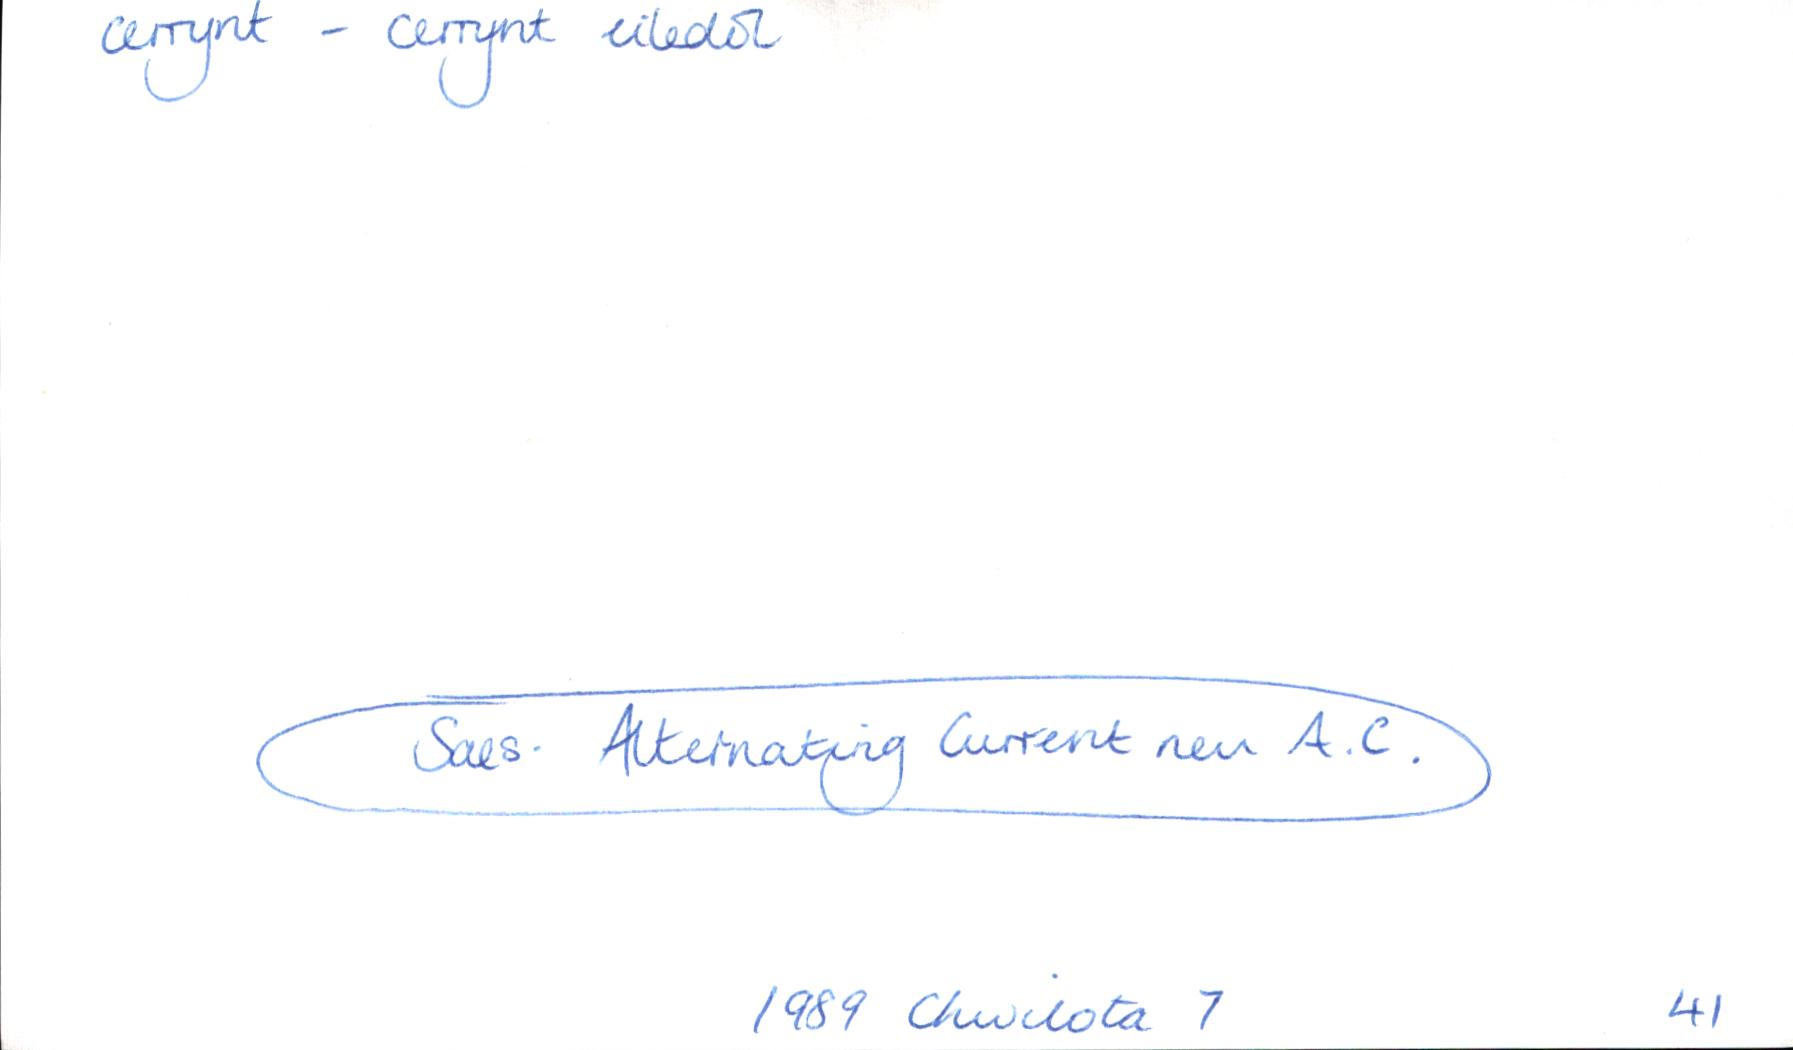 cerrynt - cerrynt eiledol
Saes. Alternating Current neu A.C.
1989 Chwilota 7 41